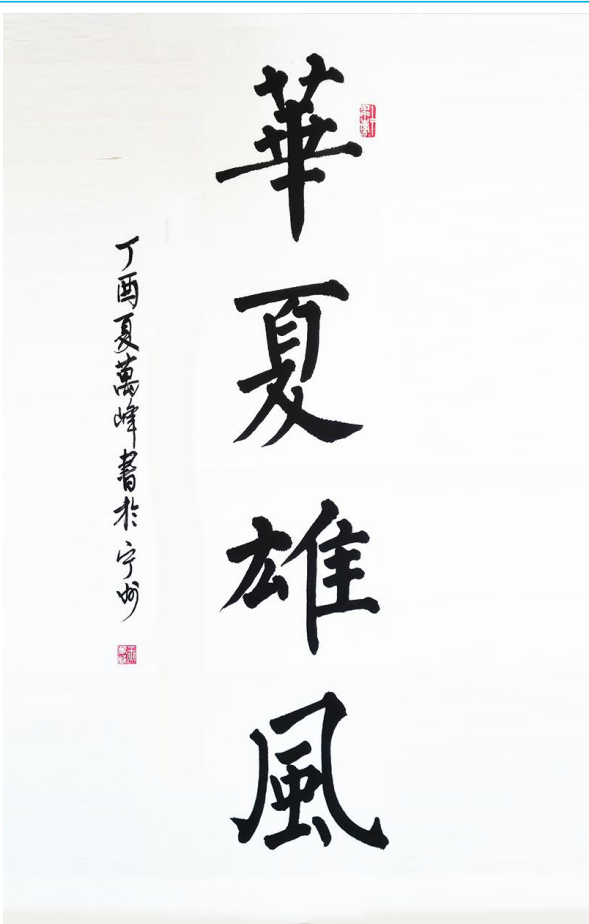 華夏雄風
丁酉夏萬峰書於宁州